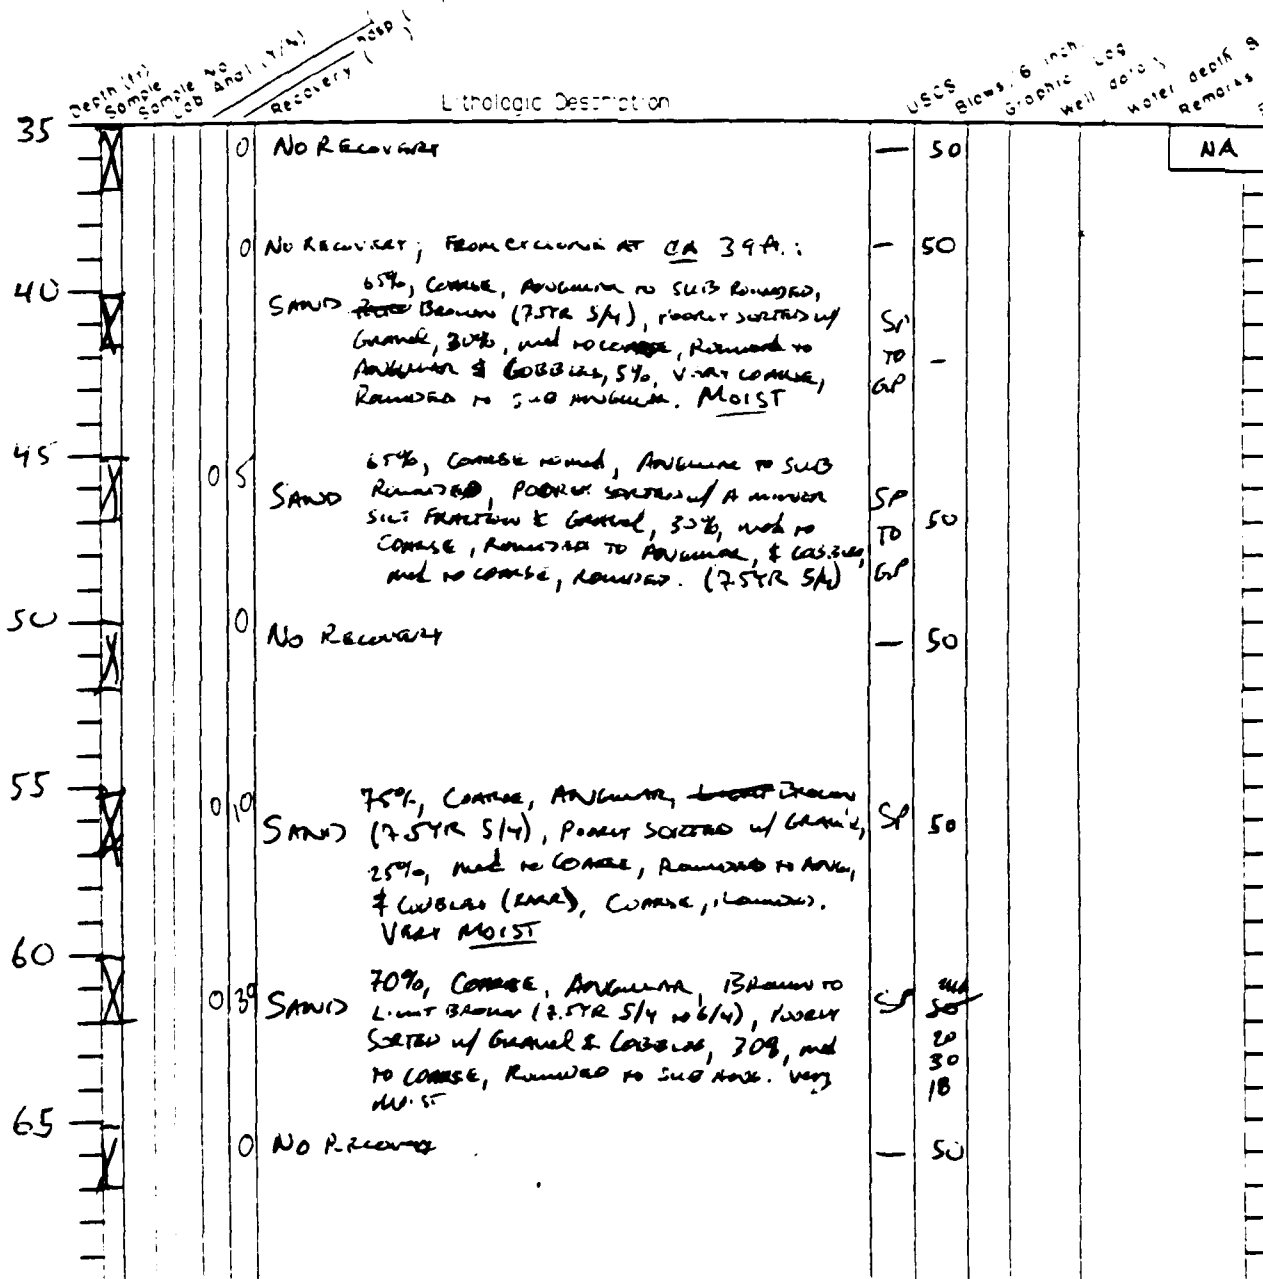 Depth (ft)
Sample
Sample No
Lab Anal (Y/N)
Recovery ( )
Lithologic Description
USCS
Blows/6 inch
Graphic Log
Well data
Water depth &
Remarks
35
0 NO RECOVERY — 50
NA
0 NO RECOVERY; FROM CYCLONE AT CA 39 ft.: — 50
40
65%, COARSE, ANGULAR TO SUB ROUNDED,
SAND BROWN (7.5YR 5/4), POORLY SORTED w/ SP
GRAVEL, 30%, med TO COARSE, ROUNDED TO TO —
ANGULAR & COBBLES, 5%, VERY COARSE, GP
ROUNDED TO SUB ANGULAR. MOIST
45
0 5 65%, COARSE TO med, ANGULAR TO SUB
SAND ROUNDED, POORLY SORTED w/ A MINOR SP
SILT FRACTION & GRAVEL, 30%, med TO TO 50
COARSE, ROUNDED TO ANGULAR, & COBBLES, GP
med TO COARSE, ROUNDED. (7.5YR 5/4)
50
0 NO RECOVERY — 50
55
0 10 75%, COARSE, ANGULAR, LIGHT BROWN
SAND (7.5YR 5/4), POORLY SORTED w/ GRAVEL, SP 50
25%, med TO COARSE, ROUNDED TO ANG,
& COBBLES (RARE), COARSE, ROUNDED.
VERY MOIST
60
70%, COARSE, ANGULAR, BROWN TO
0 30 SAND LIGHT BROWN (7.5YR 5/4 TO 6/4), POORLY SP 50
SORTED w/ GRAVEL & COBBLES, 30%, med 20
TO COARSE, ROUNDED TO SUB ANG. VERY 30
MOIST 18
65
0 NO RECOVERY — 50